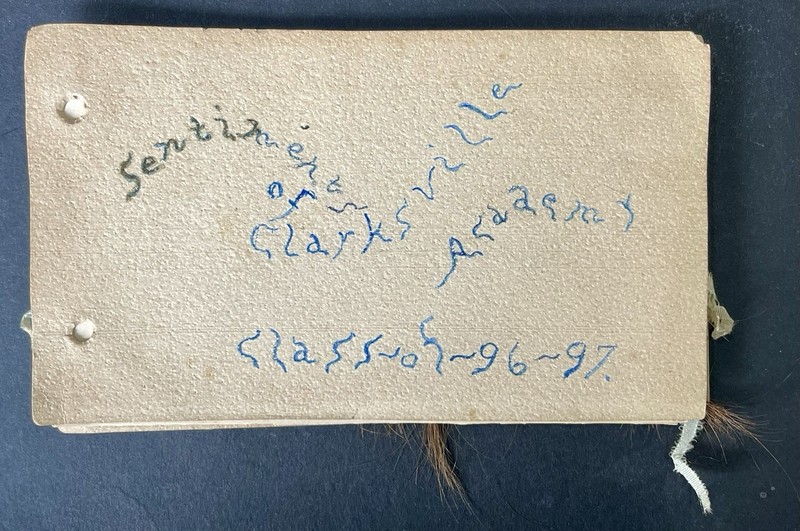 Sentiment
of
Clarksville
Academy
Class~of~96~97.